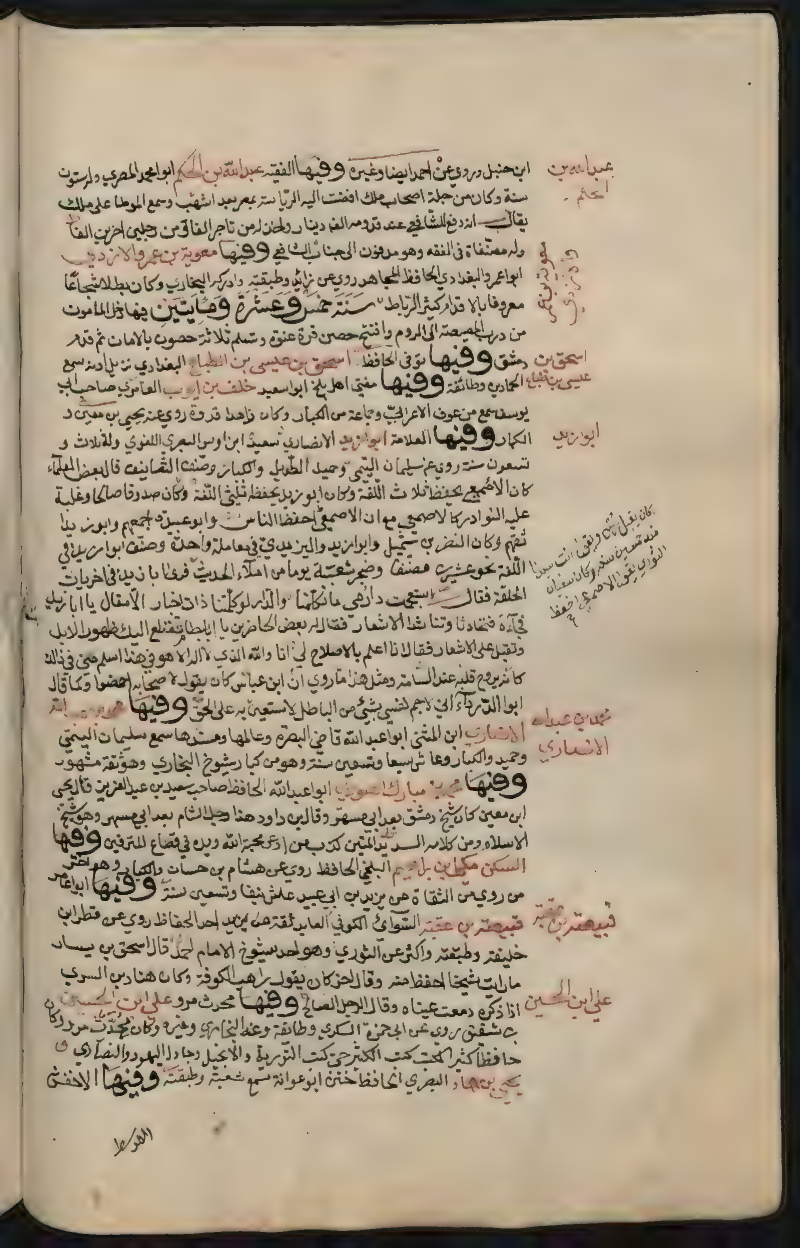 ابن حنبل وروى عن احمد ايضا وغيره وفيها الفقيه عبد الله بن الحكم ابو محمد المصري وله ستون
سنة وكان من جلة اصحاب ملك افضت اليه الرياسة بمصر بعد اشهب وسمع الموطا على ملك
يقال انه دفع للشافعي عند قدومه الف دينار واخذ له من تاجر الفا ومن رجلين اخرين الفا
وله مصنفات في الفقه وهو مدفون الى جناب الشافعي وفيها معوية بن عمرو الازدي
ابو عمرو البغدادي الحافظ المجاهد روى عن زايدة وطبقته وادركه البخاري وكان بطلا شجاعا
معروفا بالاقدام كثير الرباط سنة خمس وعشرة ومايتين فيها دخل المامون
من درب المصيصة الى الروم وافتتح حصن قرة عنوة وتسلم ثلاثة حصون بالامان ثم قدم
دمشق وفيها توفى الحافظ اسحق بن عيسى بن الطباع البغدادي نزيل اذنه سمع
الحمادين وطائفة وفيها مفتي اهل بلخ ابو سعيد خلف بن ايوب العامري صاحب ابي
يوسف سمع من عوف الاعرابي وجماعة من الكبار وكان زاهدا قدوة روى عنه يحيى بن معين و
الكبار وفيها العلامة ابو زيد الانصاري سعيد ابن اوس البصري اللغوي وله ثلاث و
تسعون سنة روى عن سليمان التيمي وحميد الطويل والكبار وصنف التصانيف قال بعض العلماء
كان الاصمعي يحفظ ثلاث اللغة وكان ابو زيد يحفظ ثلثي اللغة وكان صدوقا صالحا وغلبة
عليه النوادر كالاصمعي مع ان الاصمعي احفظ الناس وابو عبيدة اجمعهم وابو زيد
وكان النضر بن شميل وابو زيد واليزيدي في معاملة واحدة وصنف ابو زيد في
اللغة نحو عشرين مصنفا وضجر شعبة يوما من املاء الحديث فراى ابا زيد في اخريات
الحلقة فقال استعجمت دار مي ما تكلمنا والدار لو كلمتنا ذات اخبار الي يا ابا زيد
فجاءه فتحادثا وتناشدا الاشعار فقال له بعض الحاضرين يا ابا بسطام نقطع اليك ظهور الابل
وتقبل على الاشعار فقال انا اعلم بالاصلاح لي انا والله الذي لا اله الا هو في هذا اسلم مني في ذاك
كانه يروح قلبه عند السامة ومثل هذا ما روي ان ابن عباس كان يقول لاصحابه احمضوا وكما قال
ابو الدرداء اني لاجم نفسي بشيء من الباطل لاستعين به على الحق وفيها محمد بن عبد الله
الانصاري ابن المثنى ابو عبد الله قاضي البصرة وعالمها ومسندها سمع سليمان التيمي
وحميد والكبار وعاش سبعا وتسعين سنة وهو من كبار شيوخ البخاري وهو ثقة مشهور
وفيها محمد بن مبارك الصوري ابو عبد الله الحافظ صاحب سعيد بن عبد العزيز قال يحيى
ابن معين كان شيخ دمشق بعد ابي مسهر وقال بن داود هذا رجل الشام بعد ابي مسهر وهو شيخ
الاسلام ومن كلامه كذب من ادعى محبة الله ويده في قصاع المترفين وفيها
السكن مكي بن ابراهيم البلخي الحافظ روى عن هشام بن حسان والكبار وهو اخر
من روى من الثقاة عن يزيد بن ابي عبيد عاش نيفا وتسعين سنة وفيها ابو عامر
قبيصة بن عقبة السوائي الكوفي العابد الثقة احد الحفاظ روى عن فطر ابن
خليفة وطبقته واكثر عن الثوري وهو احد شيوخ الامام احمد قال اسحق بن يسار
ما رايت شيخا احفظ منه وقال اخر كان يقول راهب الكوفة وكان هناد بن السري
اذا ذكره دمعت عيناه وقال الرجل الصالح وفيها محدث مرو علي ابن الحسين
بن شقيق روى عن ابي حمزة السكري وطائفة وعنه البخاري وغيره وكان محدث مرو وكان
حافظا كثير الكتب كتب الكثير حتى كتب التورية والانجيل وجادل اليهود والنصارى و
يحيى بن حماد البصري الحافظ ختن ابو عوانة سمع شعبة وطبقته وفيها الاخفش
الاوسط
عبد الله بن
الحكم
معوية بن عمرو
الازدي
اسحق بن
عيسى بن الطباع
ابو زيد
محمد بن عبد الله
الانصاري
قبيصة بن عقبة
علي ابن الحسين